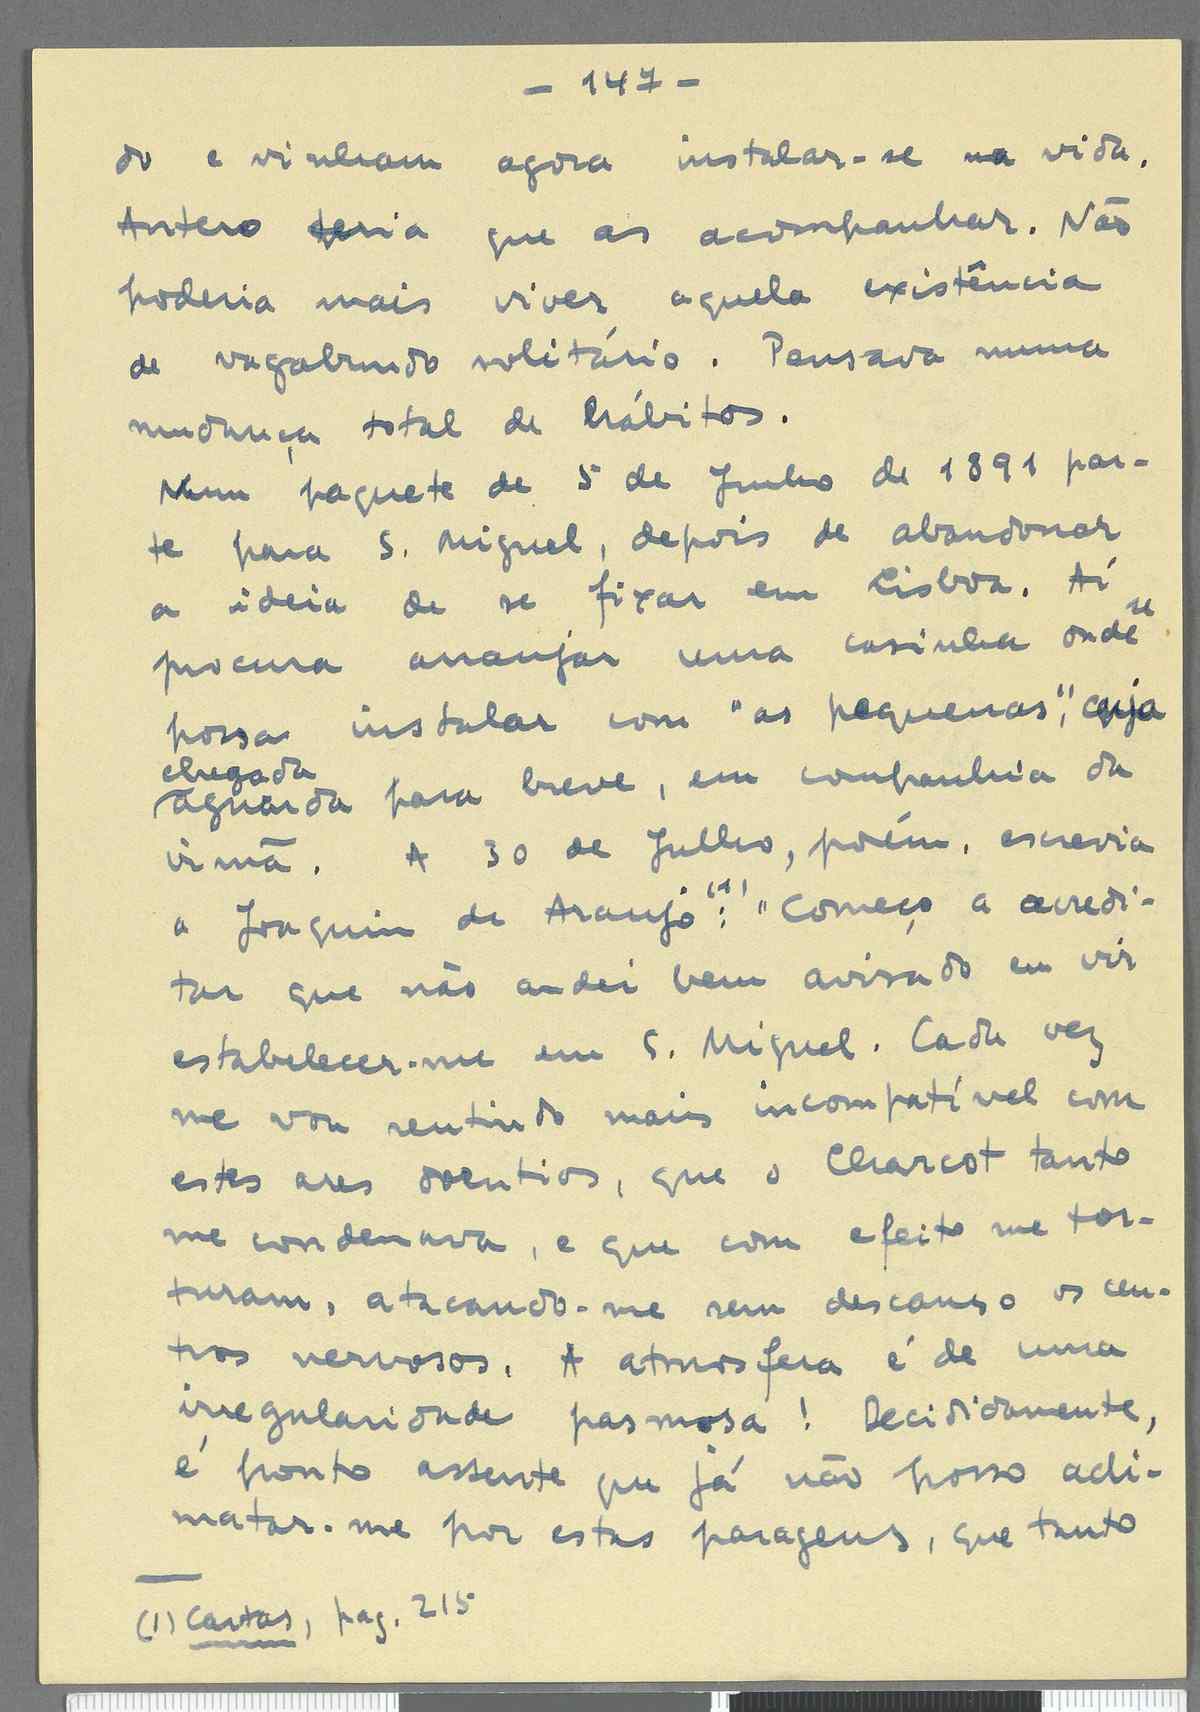 - 147 -
do e vinham agora instalar-se na vida.
Antero teria que as acompanhar. Não
poderia mais viver aquela existência
de vagabundo solitário. Pensava numa
mudança total de hábitos.
Num paquete de 5 de Junho de 1891 par-
te para S. Miguel, depois de abandonar
a ideia de se fixar em Lisboa. Aí
procura arranjar uma casinha onde se
possa instalar com "as pequenas", cuja
chegada
aguarda para breve, em companhia da
irmã. A 30 de Julho, porém, escrevia
a Joaquim de Araujo (1): "Começo a acredi-
tar que não andei bem avisado em vir
estabelecer-me em S. Miguel. Cada vez
me vou sentindo mais incompatível com
estes ares doentios, que o Charcot tanto
me condenava, e que com efeito me tor-
turam, atacando-me sem descanso os cen-
tros nervosos. A atmosfera é de uma
irregularidade pasmosa! Decididamente,
é ponto assente que já não posso acli-
matar-me por estas paragens, que tanto
(1) Cartas, pag. 215